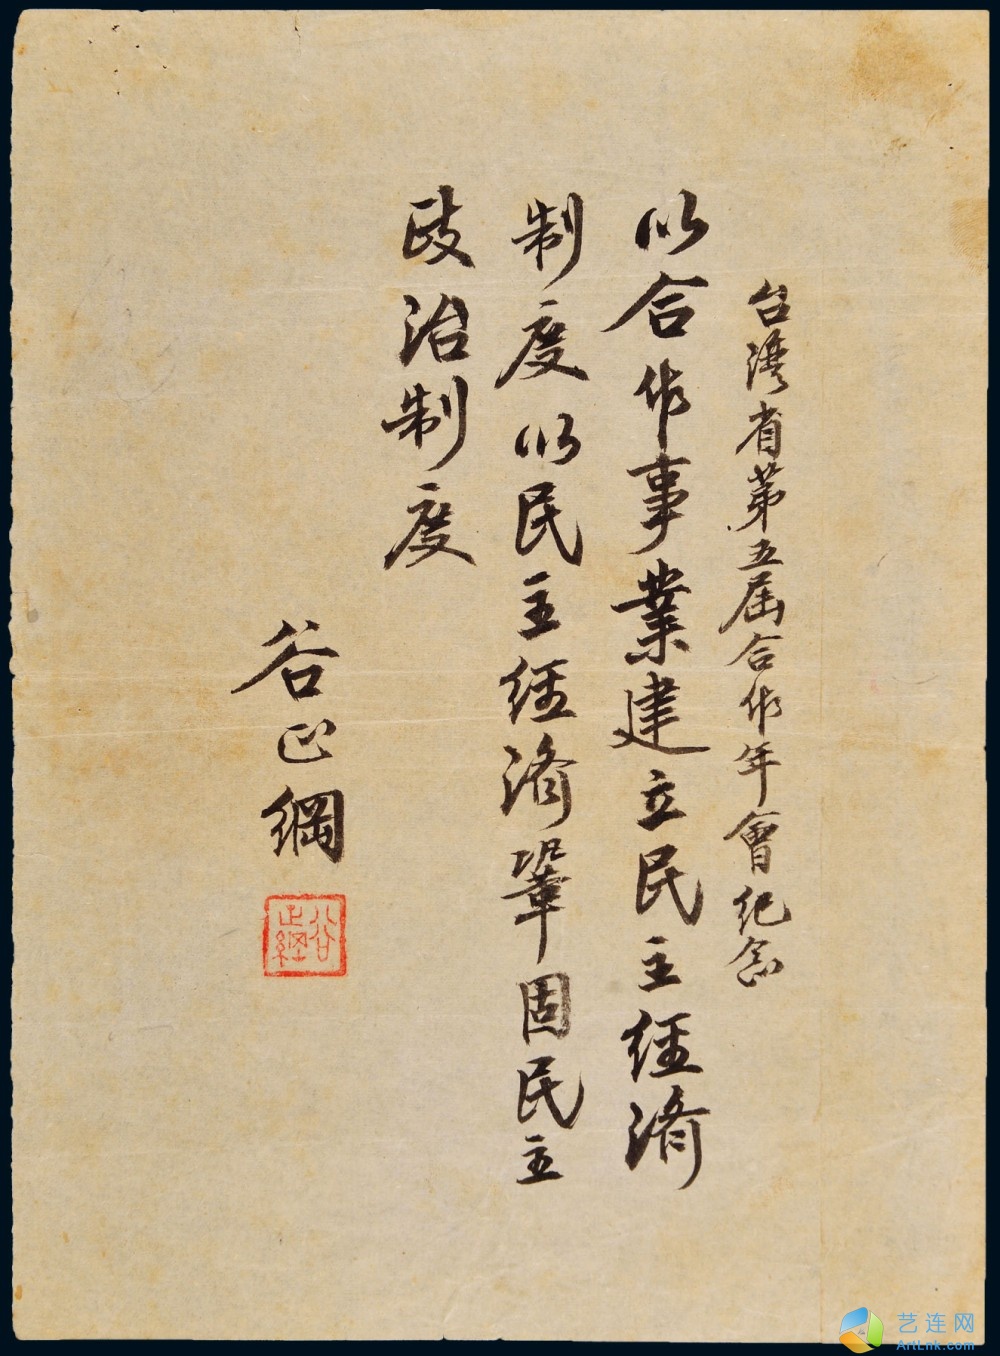 台灣省第五屆合作年會紀念
以合作事業建立民主經濟
制度以民主經濟鞏固民主
政治制度
谷正綱
谷正綱
艺连网
ArtLnk.com